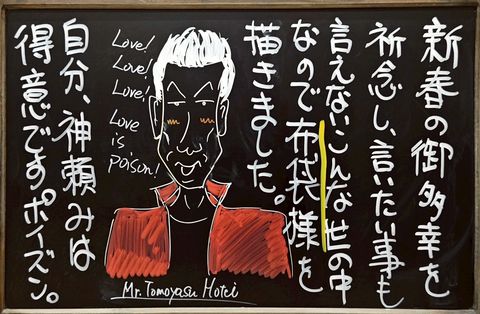 新春の御多幸を
祈念し、言いたい事も
言えないこんな世の中
なので布袋様を
描きました。
Love!
Love!
Love!
Love
is
poison!
Mr. Tomoyasu Hotei
自分、神頼みは
得意ですポイズン。